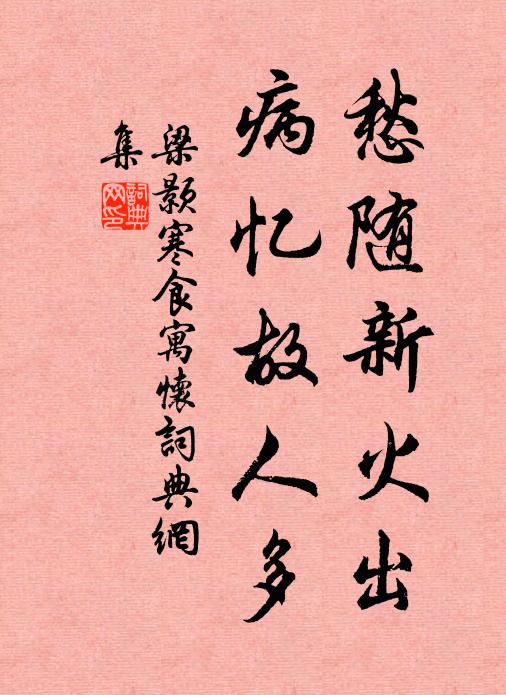 愁随新火出
病忆故人多
梁颢寒食寓懷詞典網
集
詞典
网印